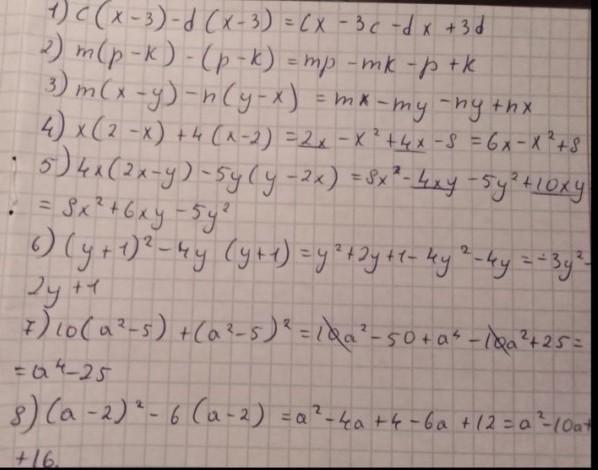 1) c(x-3)-d(x-3) = cx - 3c - dx + 3d
2) m(p-k) - (p-k) = mp - mk - p + k
3) m(x-y) - n(y-x) = mx - my - ny + nx
4) x(2-x) + 4(x-2) = 2x - x² + 4x - 8 = 6x - x² + 8
5) 4x(2x-y) - 5y(y-2x) = 8x² - 4xy - 5y² + 10xy
= 8x² + 6xy - 5y²
6) (y+1)² - 4y (y+1) = y² + 2y + 1 - 4y² - 4y = -3y² -
2y + 1
7) 10(a²-5) + (a²-5)² = 10a² - 50 + a⁴ - 10a² + 25 =
= a⁴ - 25
8) (a-2)² - 6(a-2) = a² - 4a + 4 - 6a + 12 = a² - 10a +
+16.